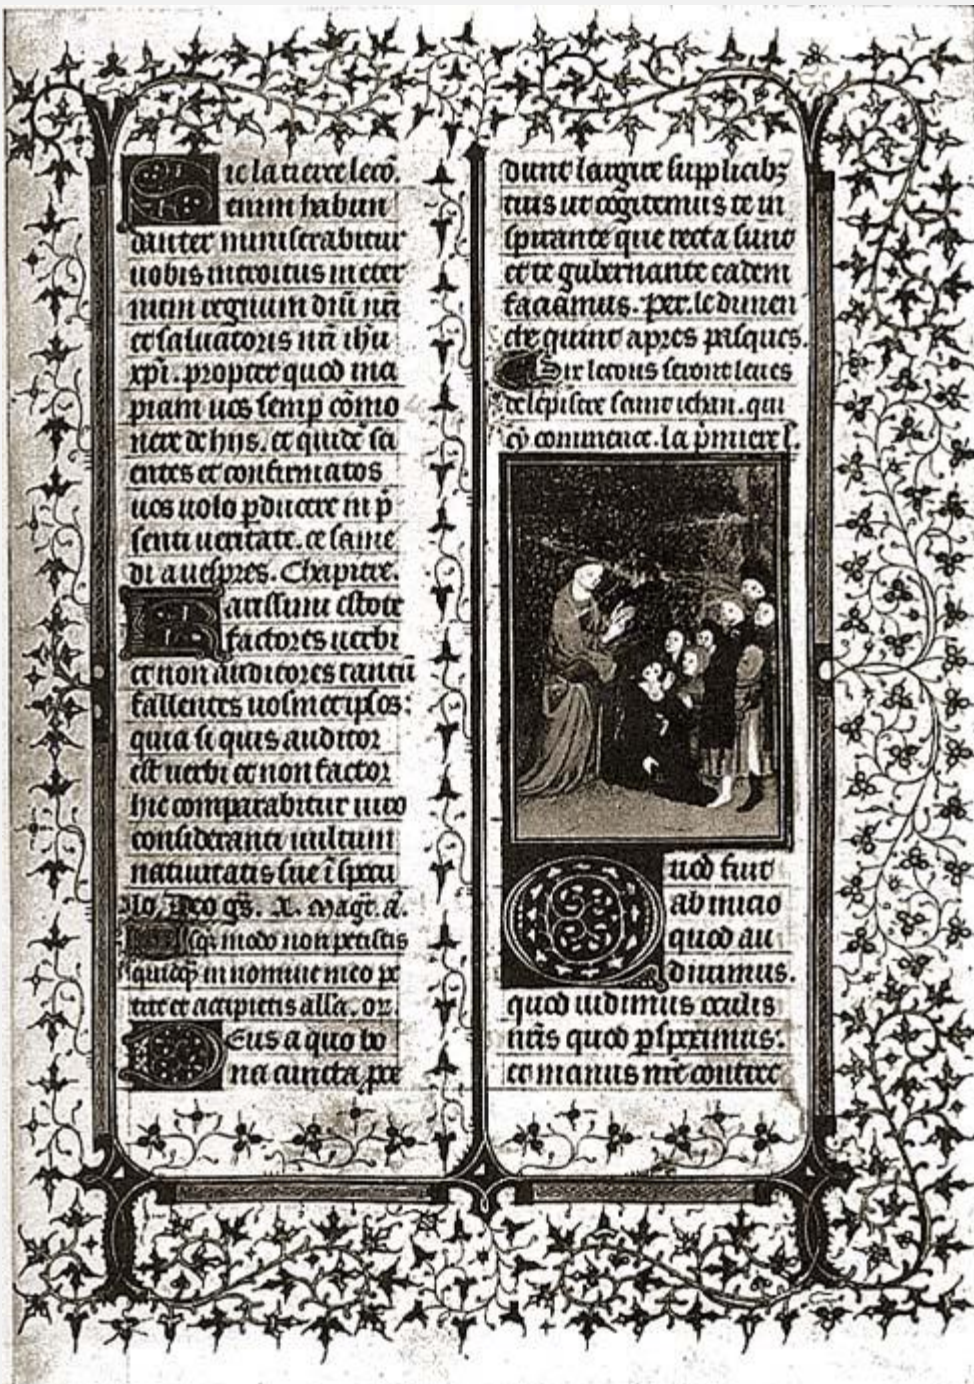 Sic la tierce lecõ.
enim habun
danter ministrabitur
uobis introitus in eter
num regnum dñi nr̃i
et saluatoris nr̃i ihu
xp̃i. propter quod inci
piam uos semp cõmo
nere de hijs. et quidẽ sci
entes et confirmatos
uos uolo pducere in p̃
senti ueritate. ce same
di a uespres. Chapitre.
Karissimi estote
factores uerbi
et non auditores tantũ
fallentes uosmetipsos:
quia si quis auditor
est uerbi et non factor
hic comparabitur uiro
consideranti uultum
natiuitatis sue ĩ specu
lo. Deo gs̃. Magt̃. a.
Usq; modo non petistis
quicq̃ in nomine meo pe
tite et accipietis alla. or.
Deus a quo bo
na cuncta pce
dunt largire supplicibꝫ
tuis ut cogitemus te in
spirante que recta sunt
et te gubernante eadem
faciamus. per. le dimen
che quint apres pasques.
Six lecons seront leues
de lepistre saint iehan. qui
cy commence. la p̃miere l.
Quod fuit
ab inicio
quod au
diuimus.
quod uidimus oculis
nr̃is quod pspeximus:
et manus nr̃e contrec